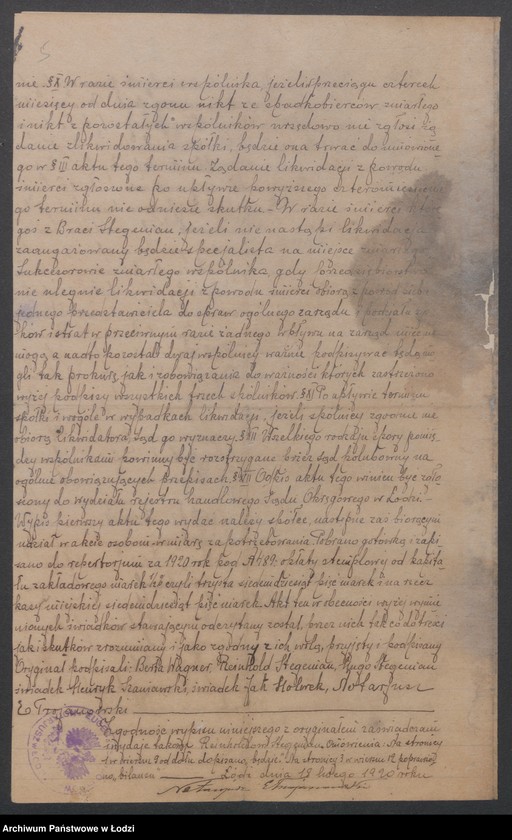 nie. § X W razie śmierci wspólnika, jeżeli przeciągu czterech
miesięcy od dnia zgonu nikt ze spadkobierców zmarłego
i nikt z pozostałych wspólników urzędowo nie zgłosi żą
danie zlikwidowania spółki, będzie ona trwać do umówione
go w § III aktu tego terminu. Żądanie likwidacji z powodu
śmierci zgłoszone po upływie powyższego czteromiesięczne
go terminu nie odniesie skutku. W razie śmierci któ
goś z Braci Stegeman, jeżeli nie nastąpi likwidacja
zaangażowany będzie specjalista na miejsce zmarłego
Sukcesorowie zmarłego wspólnika, gdy
nie ulegnie likwidacji z powodu śmierci
jednego przedstawiciela do spraw ogólnego zarządu podziału zy
sków i strat w przeciwnym razie żadnego wpływu na zarząd mieć nie
mogą, a nadto pozostali dwaj wspólnicy ważnie podpisywać będą mo
gli tak prokurę, jak i zobowiązania do ważności których zastrzeżono
wyżej podpisy wszystkich trzech spólników. § XI Po upływie terminu
spółki i wogóle w wypadkach likwidacji, jeżeli spólnicy zgodnie nie
obiorą likwidatora, Sąd go wyznaczy. § XII Wszelkiego rodzaju spory pomię
dzy wspólnikami powinny być rozstrzygane przez sąd polubowny na
ogólnie obowiązujących przepisach. § XIII Odpis aktu tego winien być zało
żony do wydziału rejestru handlowego Sądu Okręgowego w Łodzi.
Wypis pierwszy aktu tego wydać należy spółce, następne zaś biorącym
udział w akcie osobom w miarę zapotrzebowania. Pobrano gotówką i zapi
sano do repertorjum za 1920 rok pod № 489: opłaty stemplowej od kapita
łu zakładowego marek 375 czyli trzysta siedemdziesiąt pięć marek i na rzecz
kasy miejskiej siedemdziesiąt pięć marek. Akt ten w obecności wyżej wymie
nionych świadków stawającym odczytany został, przez nich tak co do treści
jak i skutków zrozumiany i jako zgodny z ich wolą, przyjęty i podpisany
Oryginał podpisali: Berta Wagner, Reinhold Stegeman, Hugo Stegeman
świadek Henryk Szaniawski, świadek Jak Holwek, Notarjusz
E. Trojanowski
Zgodność wypisu niniejszego z oryginałem zaświadczam
i wydaję takowy Reinholdowi Stegeman. Omówienia: Na stronicy
1 w wierszu 3 od dołu dopisano, będzie. Na stronicy 3 w wierszu 12 poprawio
no, bilansu Łódź dnia 18 lutego 1920 roku
Notarjusz E Trojanowski
Archiwum Państwowe w Łodzi